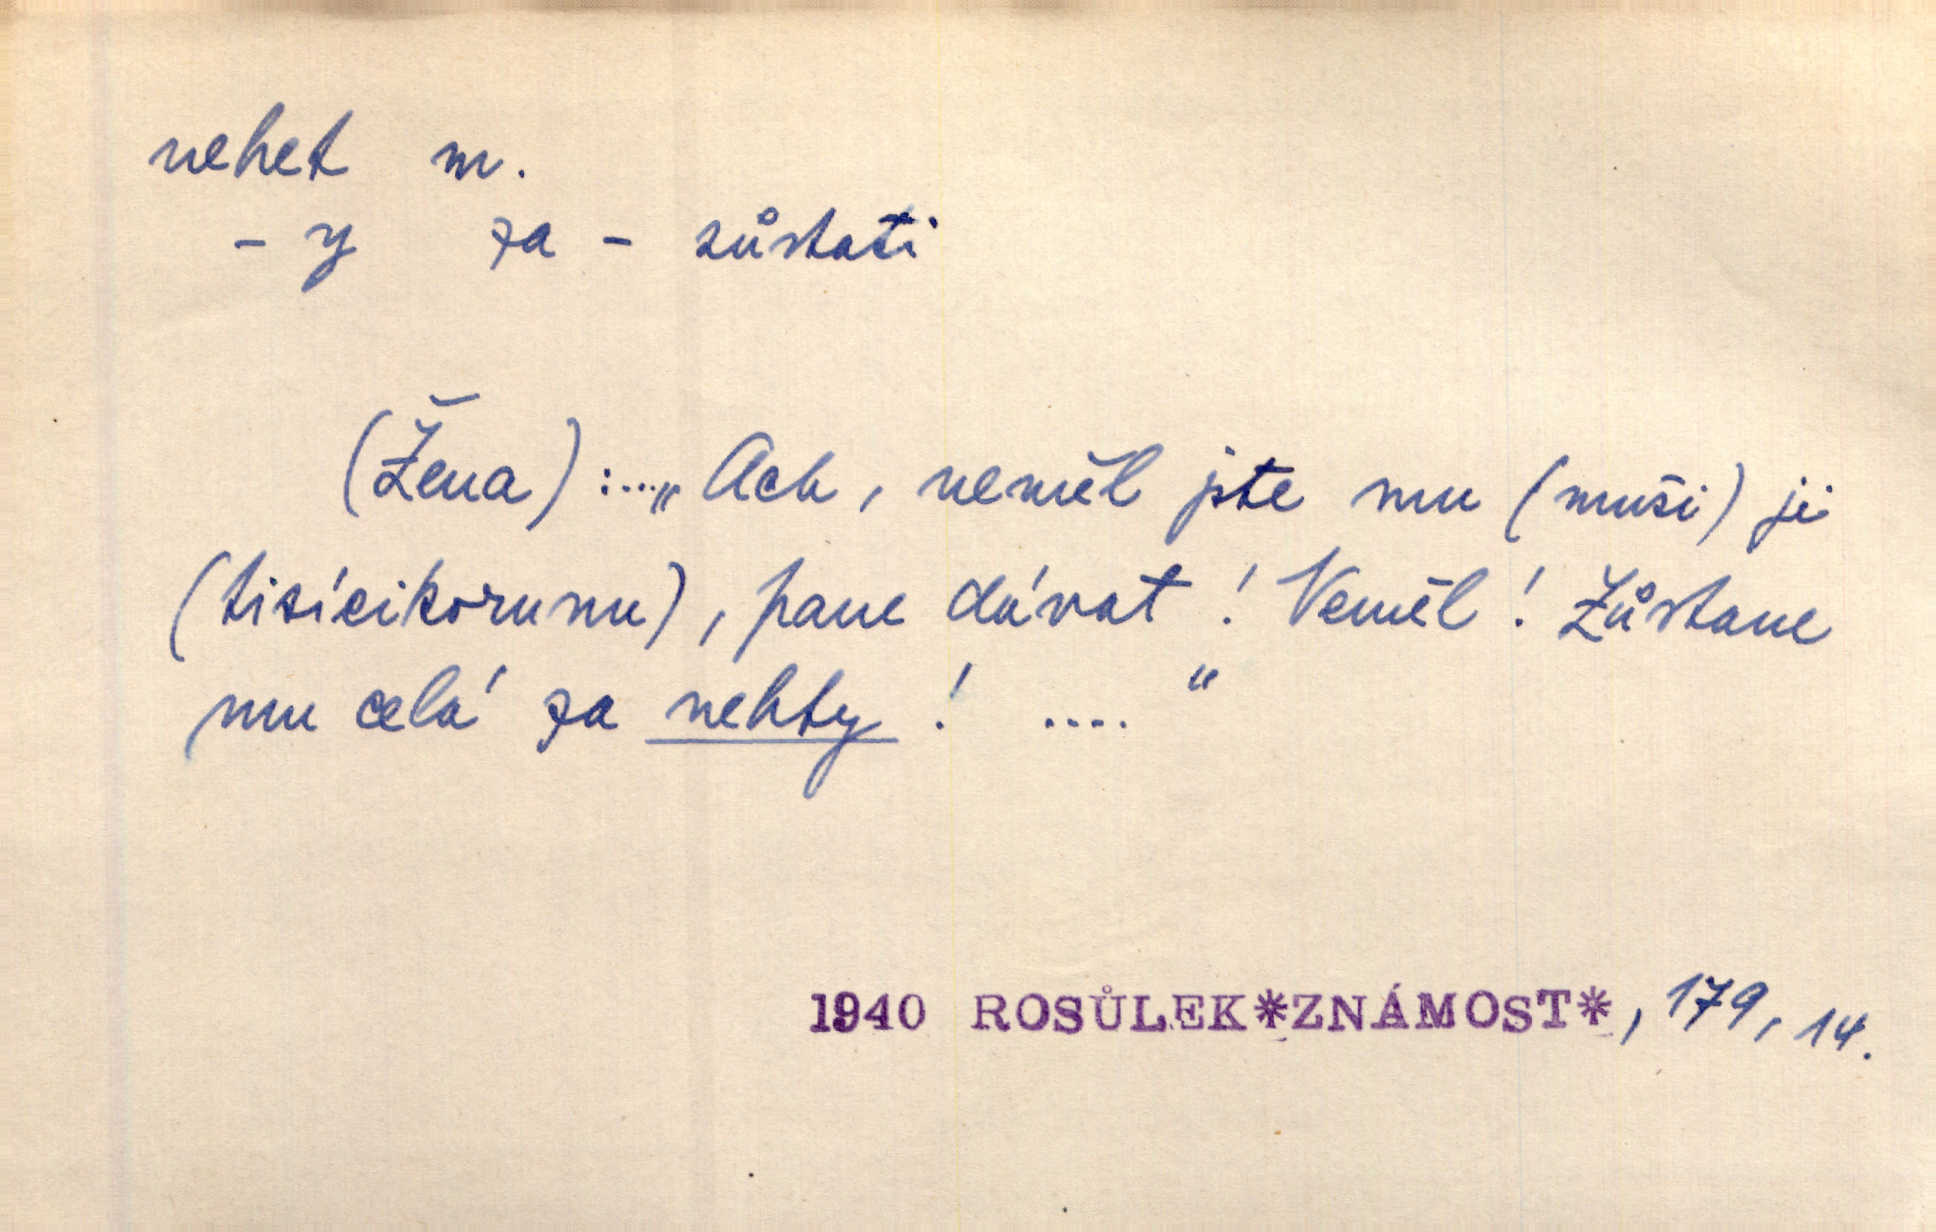 nehet m.
- y za - zůstati
(Žena) :...„Ach, neměl jste mu (muži) ji
(tisícikorunu), pane dávat! Neměl! Zůstane
mu celá za nehty! ...."
1940 ROSŮLEK*ZNÁMOST*, 179, 14.